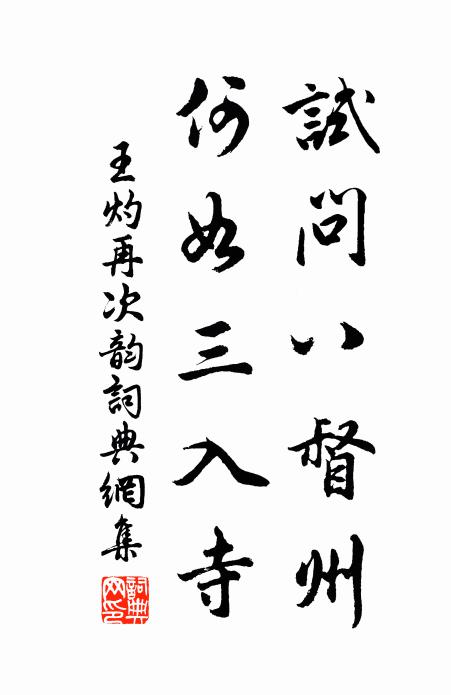 試問八督州
何如三入寺
王灼再次韵詞典網集
詞典网印